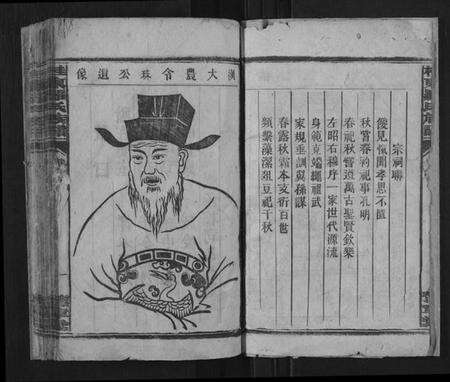 漢大農令珠公遺像
宗祠聯
僾見愾聞孝思不匱
秋嘗春礿祀事孔明
春祀秋嘗遵萬古聖賢樂
左昭右穆序一家世代源流
身範克端繩祖武
家規垂訓翼孫謀
春露秋霜本支衍百世
蘋蘩藻潔俎豆祀千秋